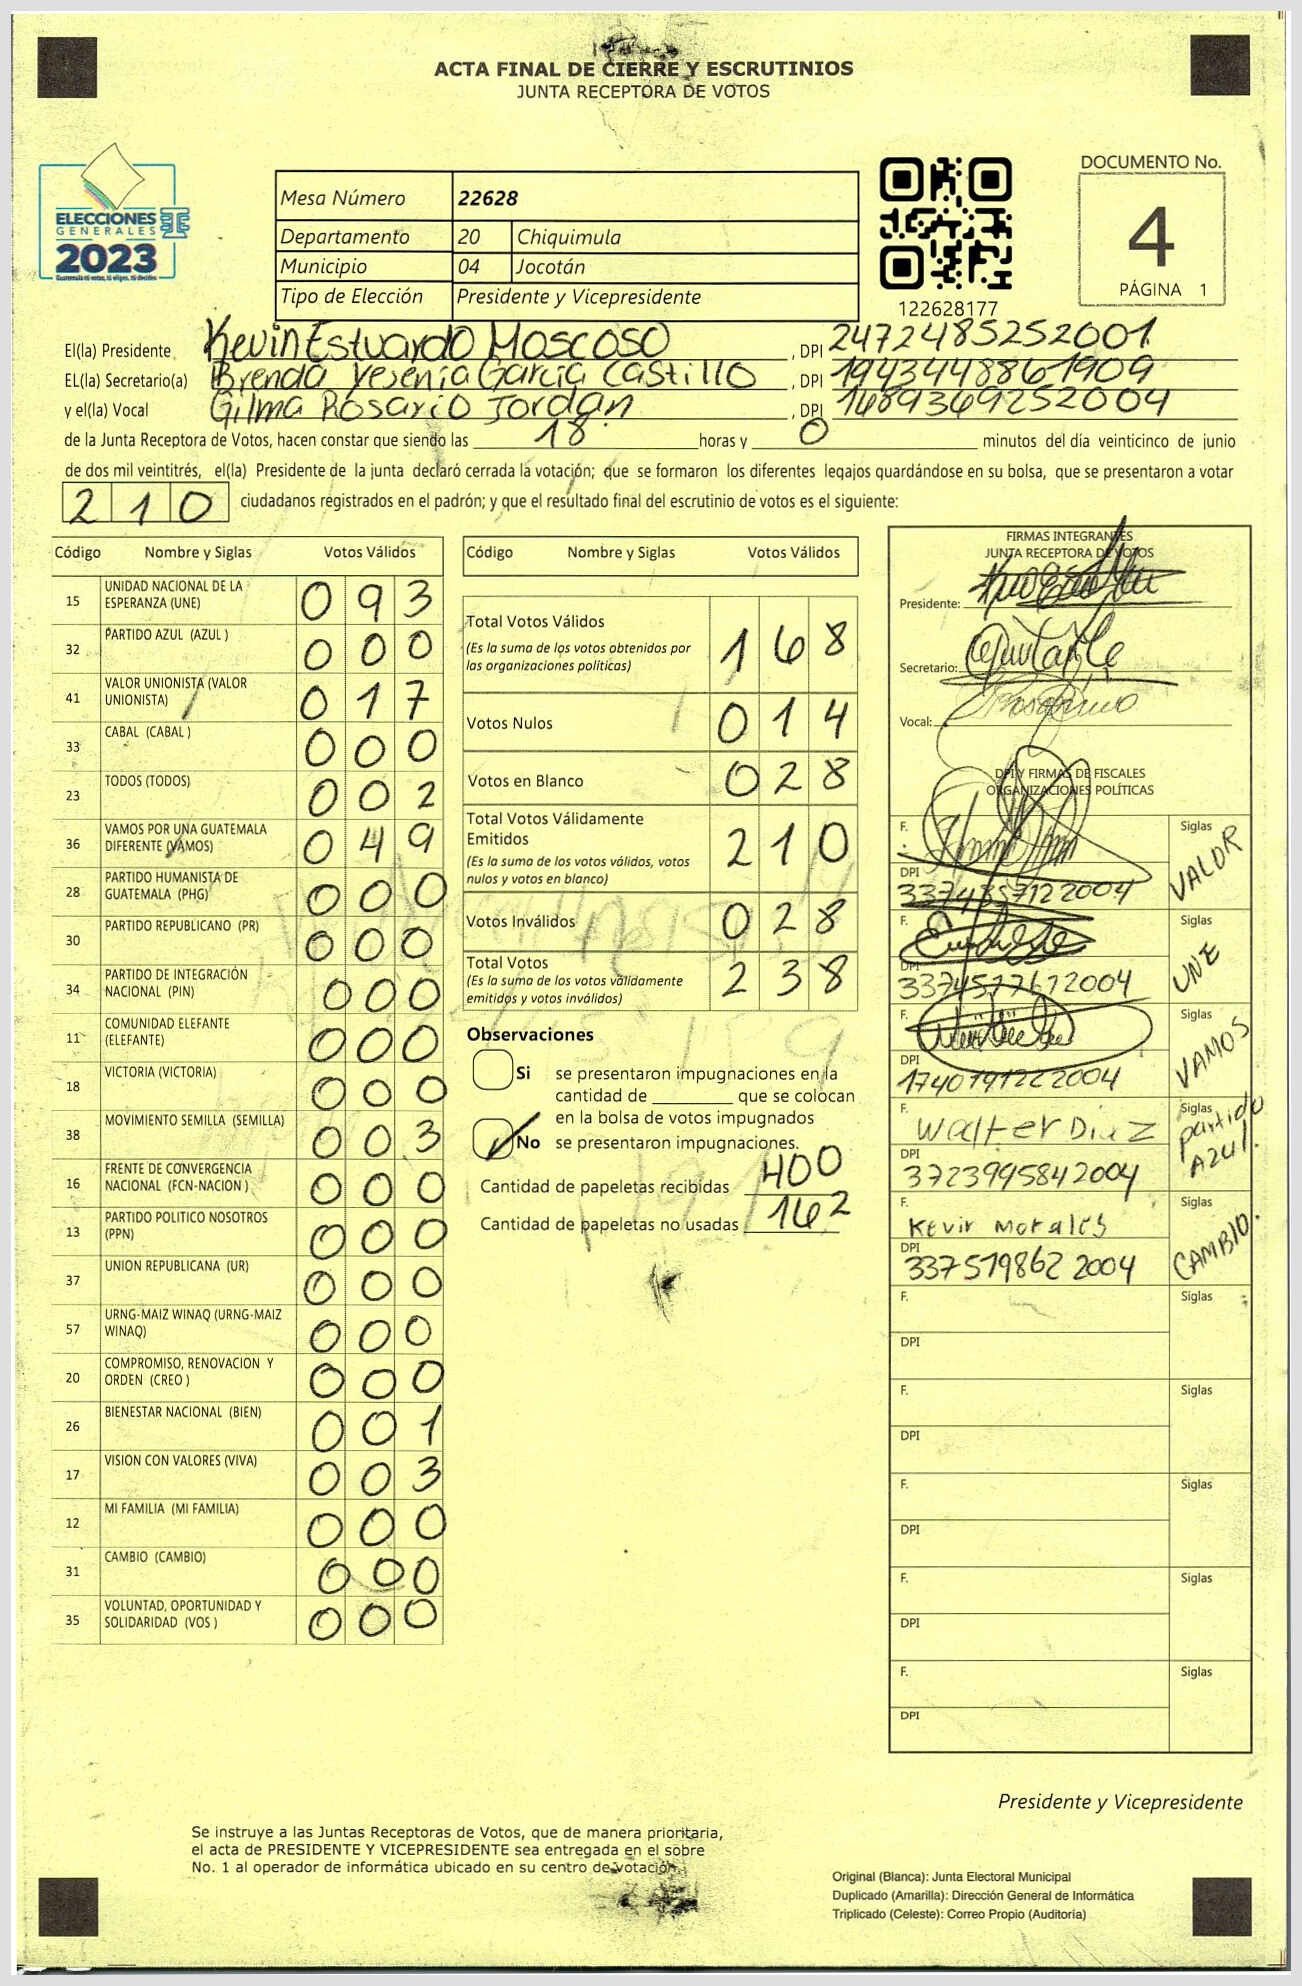 ACTA FINAL DE CIERRE Y ESCRUTINIOS
JUNTA RECEPTORA DE VOTOS
ELECCIONES
GENERALES
2023
Guatemala tú votas, tú eliges, tú decides
Mesa Número 22628
Departamento 20 Chiquimula
Municipio 04 Jocotán
Tipo de Elección Presidente y Vicepresidente
122628177
DOCUMENTO No.
4
PÁGINA 1
El(la) Presidente Kevin Estuardo Moscoso , DPI 2472485252001
EL(la) Secretario(a) Brenda Yesenia García Castillo , DPI 1943448861909
y el(la) Vocal Gilma Rosario Jordán , DPI 1689369252004
de la Junta Receptora de Votos, hacen constar que siendo las 18 horas y 0 minutos del día veinticinco de junio
de dos mil veintitrés, el(la) Presidente de la junta declaró cerrada la votación; que se formaron los diferentes legajos guardándose en su bolsa, que se presentaron a votar
210 ciudadanos registrados en el padrón; y que el resultado final del escrutinio de votos es el siguiente:
Código Nombre y Siglas Votos Válidos
15 UNIDAD NACIONAL DE LA ESPERANZA (UNE) 093
32 PARTIDO AZUL (AZUL ) 000
41 VALOR UNIONISTA (VALOR UNIONISTA) 017
33 CABAL (CABAL ) 000
23 TODOS (TODOS) 002
36 VAMOS POR UNA GUATEMALA DIFERENTE (VAMOS) 049
28 PARTIDO HUMANISTA DE GUATEMALA (PHG) 000
30 PARTIDO REPUBLICANO (PR) 000
34 PARTIDO DE INTEGRACIÓN NACIONAL (PIN) 000
11 COMUNIDAD ELEFANTE (ELEFANTE) 000
18 VICTORIA (VICTORIA) 000
38 MOVIMIENTO SEMILLA (SEMILLA) 003
16 FRENTE DE CONVERGENCIA NACIONAL (FCN-NACION ) 000
13 PARTIDO POLITICO NOSOTROS (PPN) 000
37 UNION REPUBLICANA (UR) 000
57 URNG-MAIZ WINAQ (URNG-MAIZ WINAQ) 000
20 COMPROMISO, RENOVACION Y ORDEN (CREO ) 000
26 BIENESTAR NACIONAL (BIEN) 001
17 VISION CON VALORES (VIVA) 003
12 MI FAMILIA (MI FAMILIA) 000
31 CAMBIO (CAMBIO) 000
35 VOLUNTAD, OPORTUNIDAD Y SOLIDARIDAD (VOS ) 000
Código Nombre y Siglas Votos Válidos
Total Votos Válidos 168
(Es la suma de los votos obtenidos por
las organizaciones políticas)
Votos Nulos 014
Votos en Blanco 028
Total Votos Válidamente
Emitidos 210
(Es la suma de los votos válidos, votos
nulos y votos en blanco)
Votos Inválidos 028
Total Votos 238
(Es la suma de los votos válidamente
emitidos y votos inválidos)
Observaciones
Si se presentaron impugnaciones en la
cantidad de ________ que se colocan
en la bolsa de votos impugnados
No se presentaron impugnaciones.
Cantidad de papeletas recibidas 400
Cantidad de papeletas no usadas 162
FIRMAS INTEGRANTES
JUNTA RECEPTORA DE VOTOS
Presidente:
Secretario:
Vocal:
DPI Y FIRMAS DE FISCALES
ORGANIZACIONES POLÍTICAS
F. Siglas VALOR
DPI 3374357122004
F. Siglas UNE
DPI 3374577672004
F. Siglas VAMOS
DPI 1740191222004
F. Walter Diaz Siglas partido AZUL.
DPI 3723995842004
F. Kevin Morales Siglas CAMBIO.
DPI 3375798622004
F. Siglas
DPI
F. Siglas
DPI
F. Siglas
DPI
F. Siglas
DPI
F. Siglas
DPI
Presidente y Vicepresidente
Se instruye a las Juntas Receptoras de Votos, que de manera prioritaria,
el acta de PRESIDENTE Y VICEPRESIDENTE sea entregada en el sobre
No. 1 al operador de informática ubicado en su centro de votación.
Original (Blanca): Junta Electoral Municipal
Duplicado (Amarilla): Dirección General de Informática
Triplicado (Celeste): Correo Propio (Auditoría)